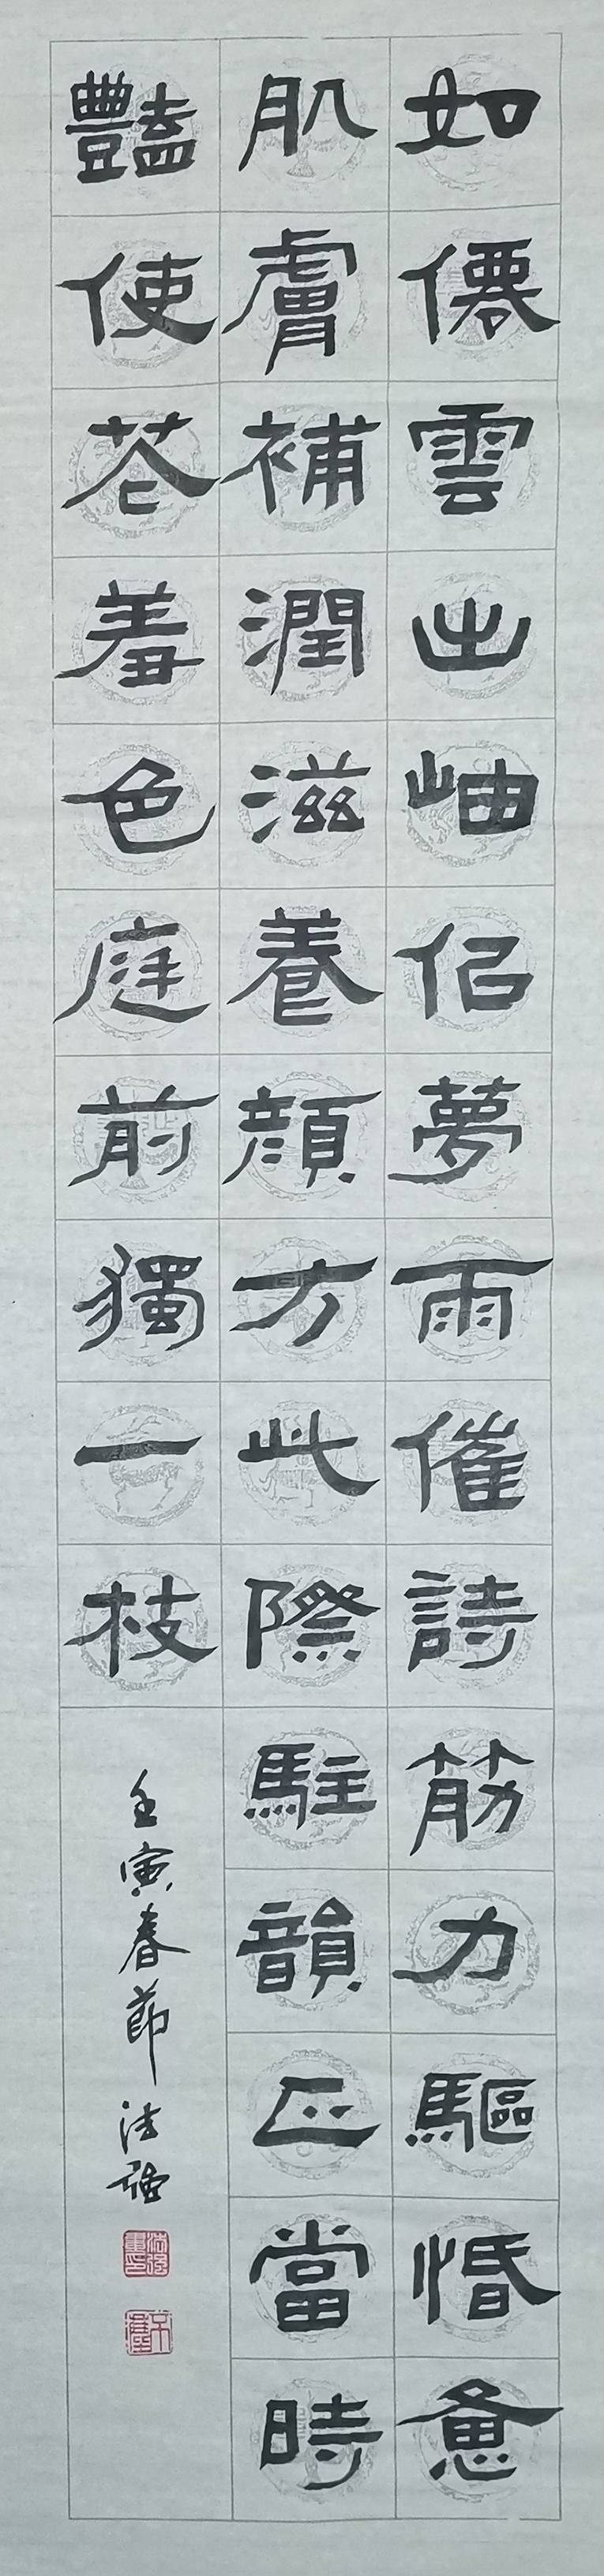 如僊雲出岫佀夢雨催詩筋力驅惛惫
肌膚補潤滋養顔方此際駐韻正當時
豔使芲羞色庭前獨一枝
壬寅春節法强